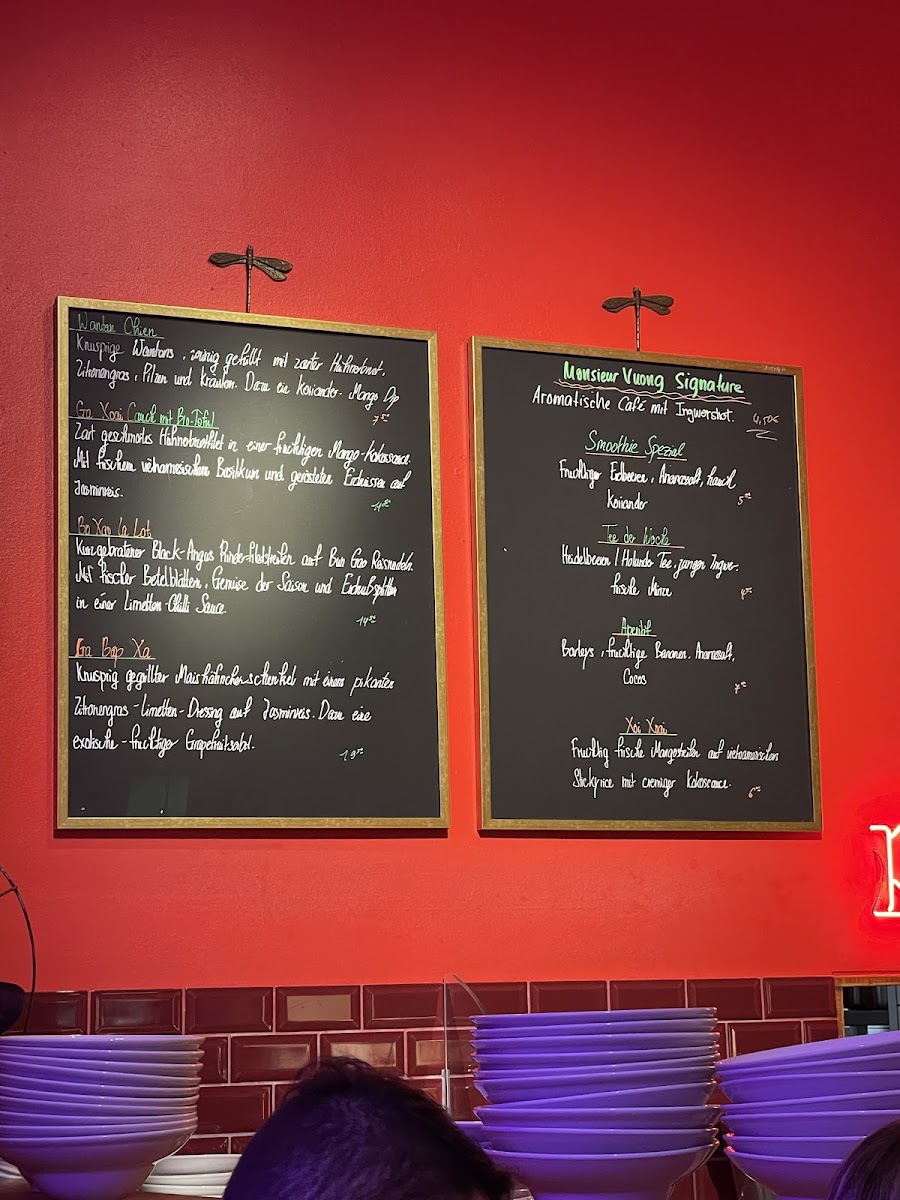 Wantan Chien
Knusprige Wantans, würzig gefüllt mit zarter Hühnerbrust,
Zitronengras, Pilzen und Kräutern. Dazu ein Koriander-Mango Dip
Ga Xoai (auch mit Bio-Tofu)
Zart geschmortes Hühnerbrustfilet in einer fruchtigen Mango-Kokossauce.
Mit frischem vietnamesischem Basilikum und gerösteten Erdnüssen auf
Jasminreis.
Bo Xao La Lot
Kurzgebratener Black-Angus Rinderfiletstreifen auf Bun Gao Reisnudeln.
Mit frischer Betelblättern, Gemüse der Saison und Erdnußsplittern
in einer Limetten-Chilli Sauce.
Ga Bop Xa
Knusprig gegrillter Maishähnchenschenkel mit einem pikanten
Zitronengras-Limetten-Dressing auf Jasminreis. Dazu eine
exotische-fruchtiger Grapefruitsalat.
Monsieur Vuong Signature
Aromatische Café mit Ingwershot. 4,50€
Smoothie Spezial
Fruchtiger Erdbeeren, Ananassaft,
Koriander
Tee der Woche
Heidelbeeren / Holunder Tee, junger Ingwer,
frische Minze
Aperitif
Baileys, fruchtige Bananen, Ananassaft,
Cocos
Xoi Xoai
Fruchtig frische Mangostreifen auf vietnamesischen
Stickyrice mit cremiger Kokossauce.